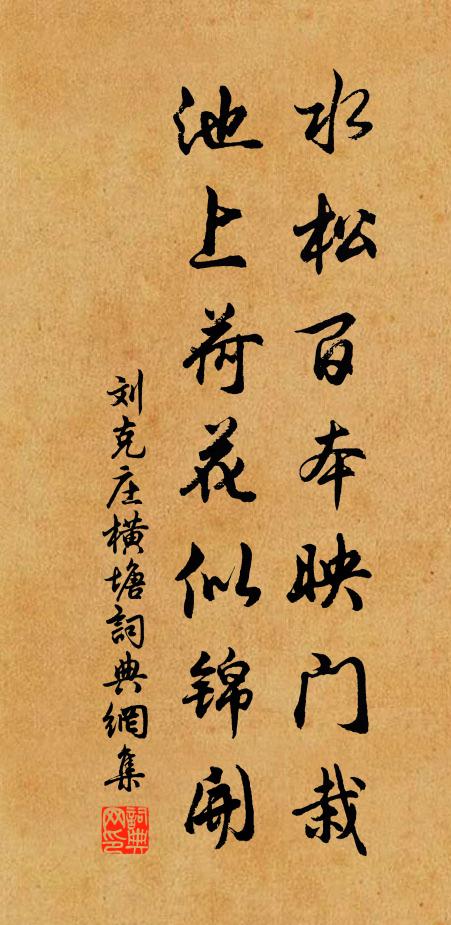 水松百本映门栽
池上荷花似锦开
刘克庄横塘詞典網集
詞典
网印